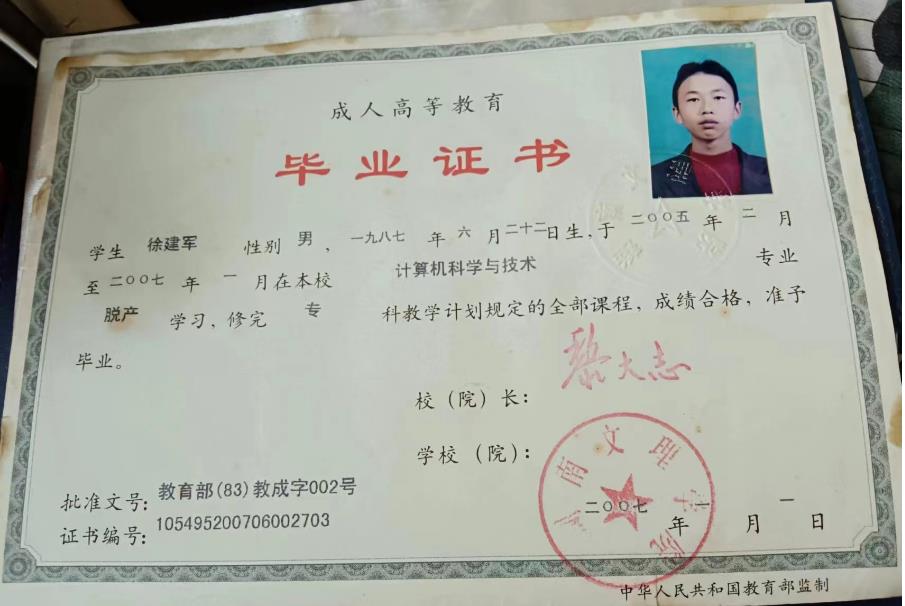 成人高等教育
毕业证书
学生 徐建军 性别 男，一九八七 年 六 月二十二日生，于 二〇〇五 年 二 月
至二〇〇七 年 一 月在本校 计算机科学与技术 专业
脱产 学习，修完 专 科教学计划规定的全部课程，成绩合格，准予
毕业。
校（院）长： 黎大志
学校（院）：
南文理学院
二〇〇七 年 一 月 一 日
批准文号：教育部(83)教成字002号
证书编号：105495200706002703
中华人民共和国教育部监制